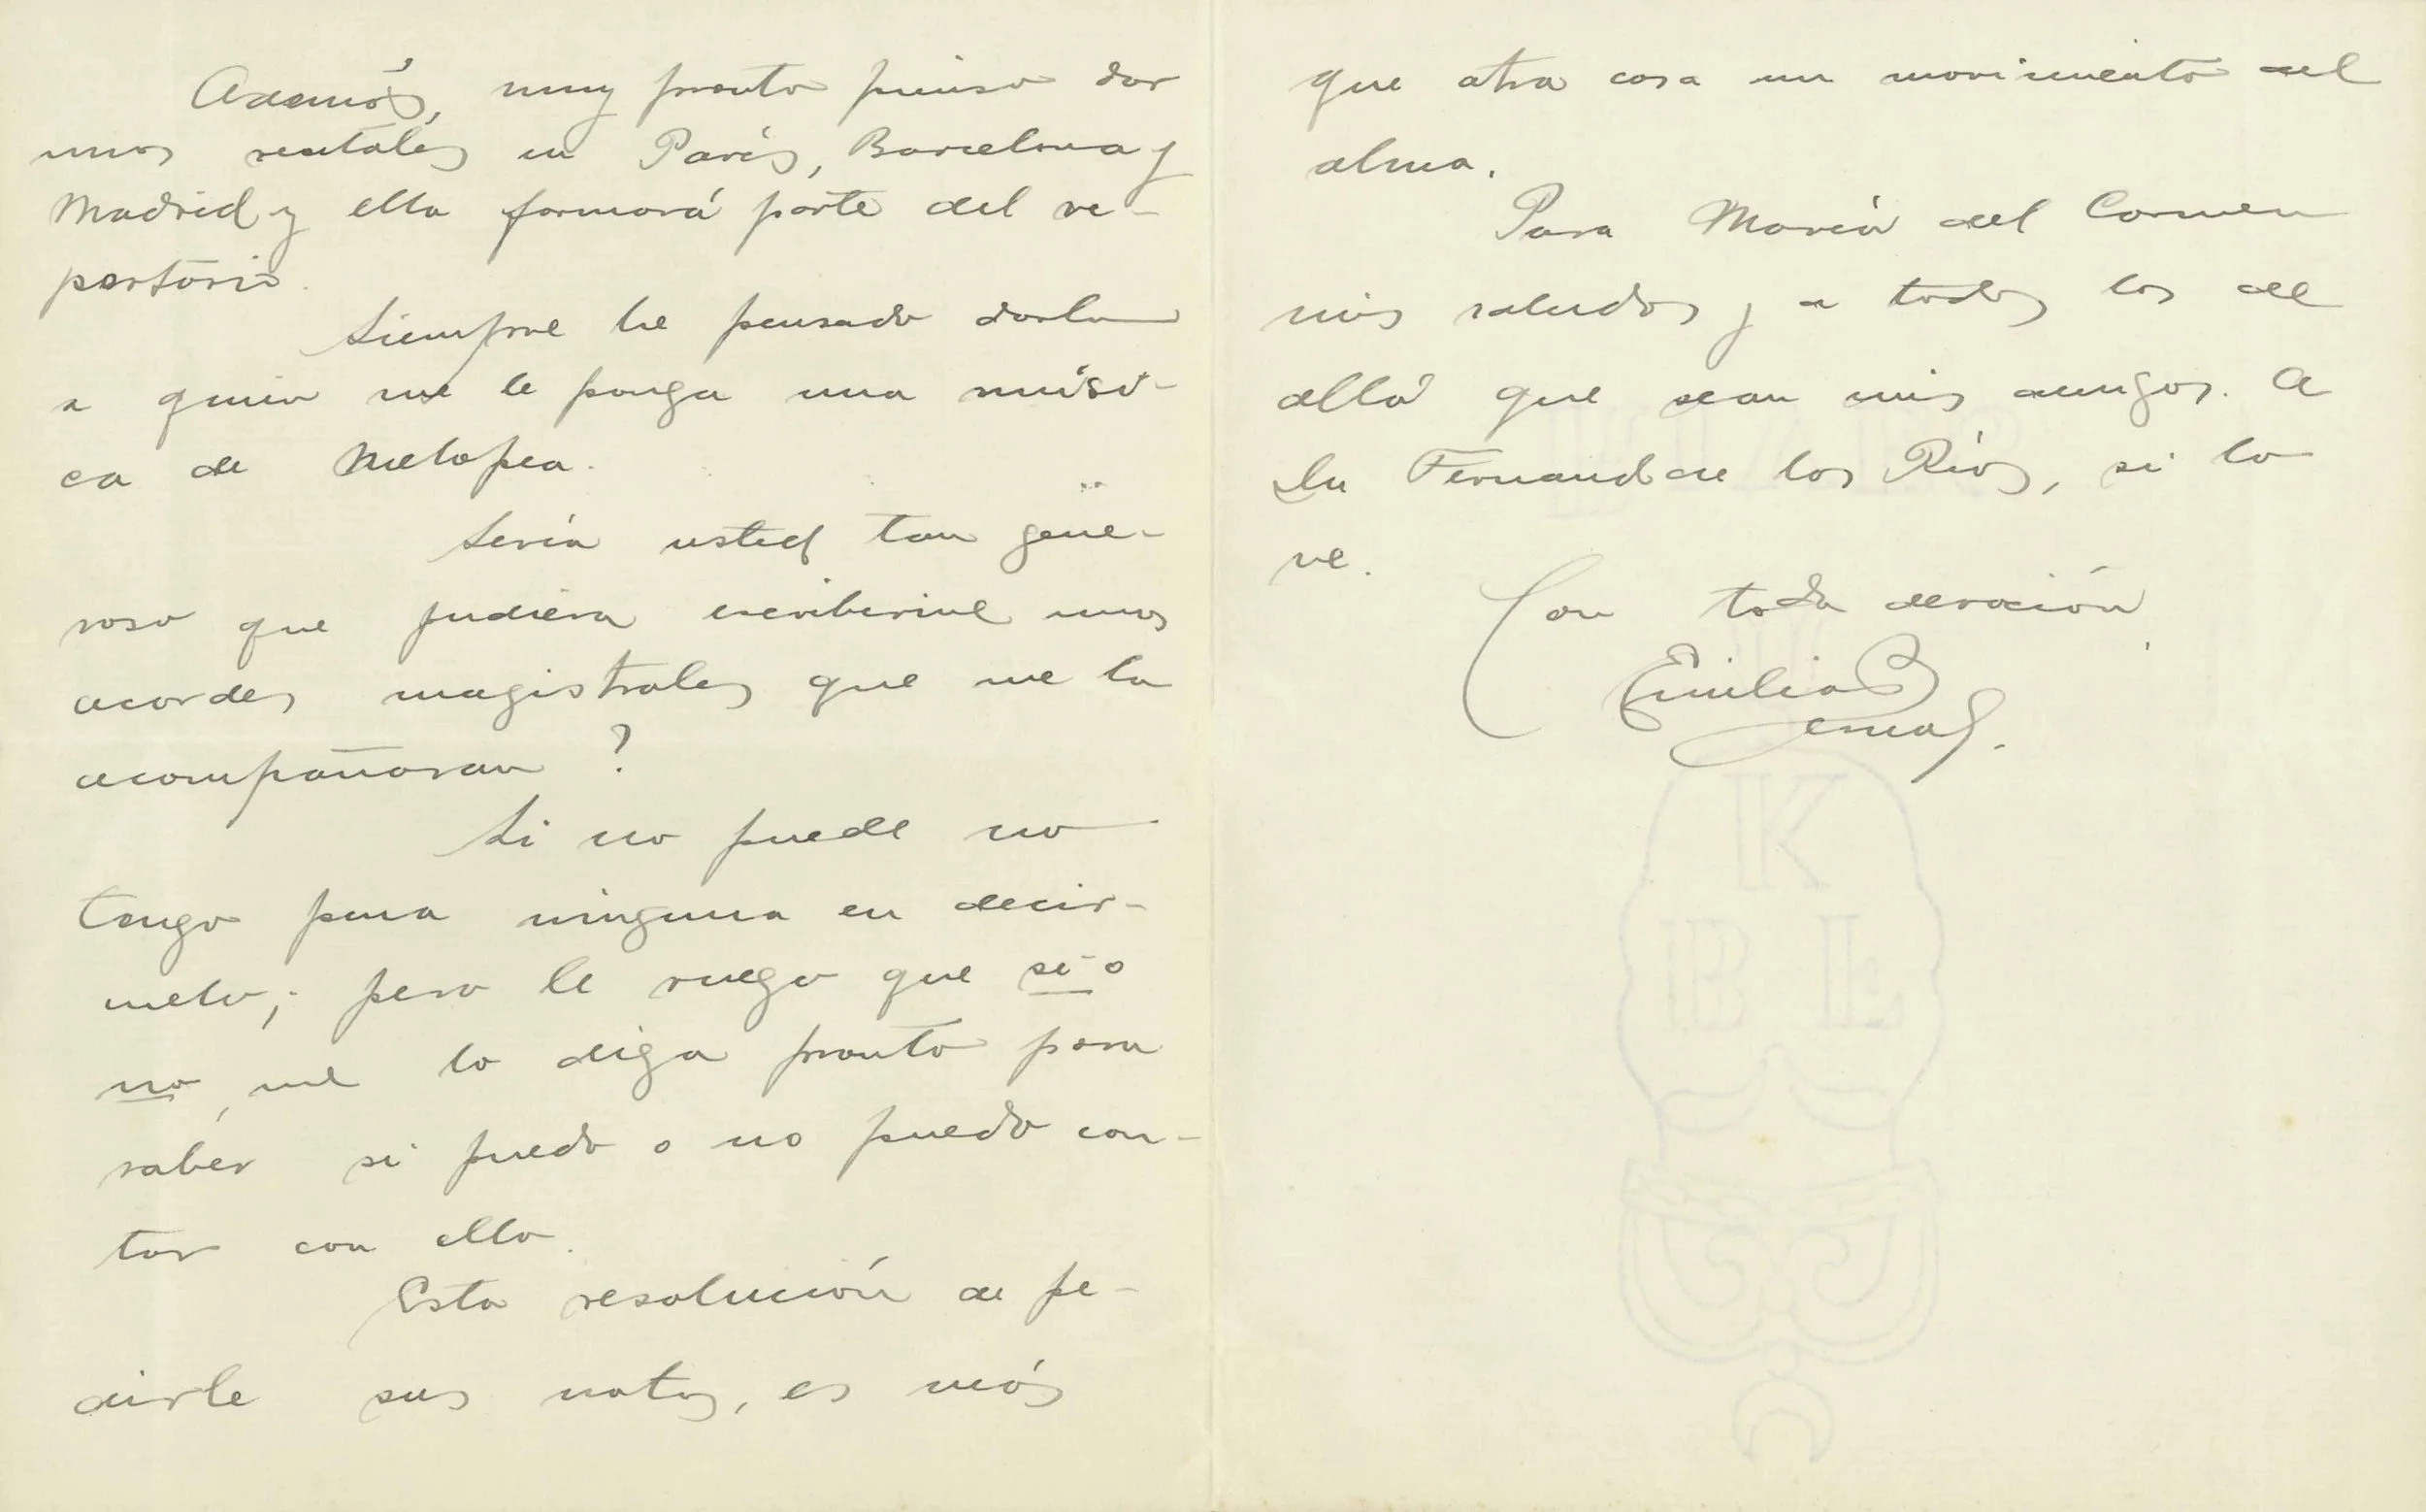 Además, muy pronto pienso dar
unos recitales en París, Barcelona y
Madrid y ella formará parte del re-
pertorio.
Siempre he pensado darla
a quien me le ponga una músi-
ca de Melopea.
Sería usted tan gene-
roso que pudiera escribirme unos
acordes magistrales que me la
acompañaran ?
Si no puede no
tenga pena ninguna en decir-
melo; pero le ruego que sí o
no, me lo diga pronto para
saber si puedo o no puedo con-
tar con ello.
Esta resolución de pe-
dirle sus notas, es más
que otra cosa un movimiento del
alma.
Para María del Carmen
mis saludos y a todos los de
allá que sean mis amigos. A
Fernando de los Ríos, si lo
ve.
Con toda devoción
Emilia Bernal.
K
B L